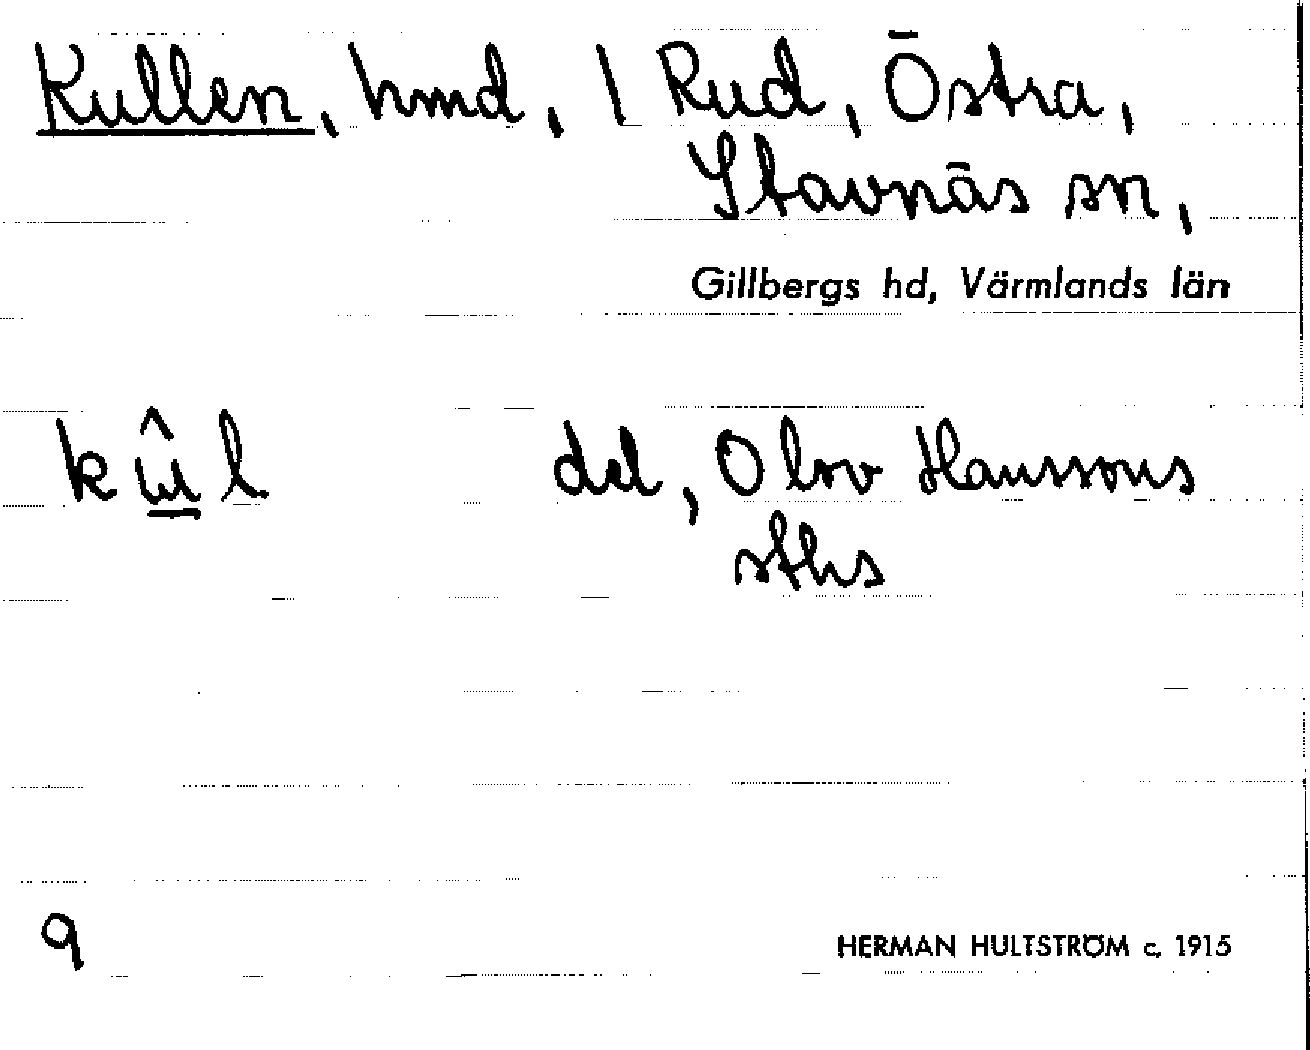 Kullen, hmd, 1 Rud, Östra,
Stavnäs sn,
Gillbergs hd, Värmlands län
kɯ̭̂l dld, Olov Hanssons
sths
9
HERMAN HULTSTRÖM c. 1915